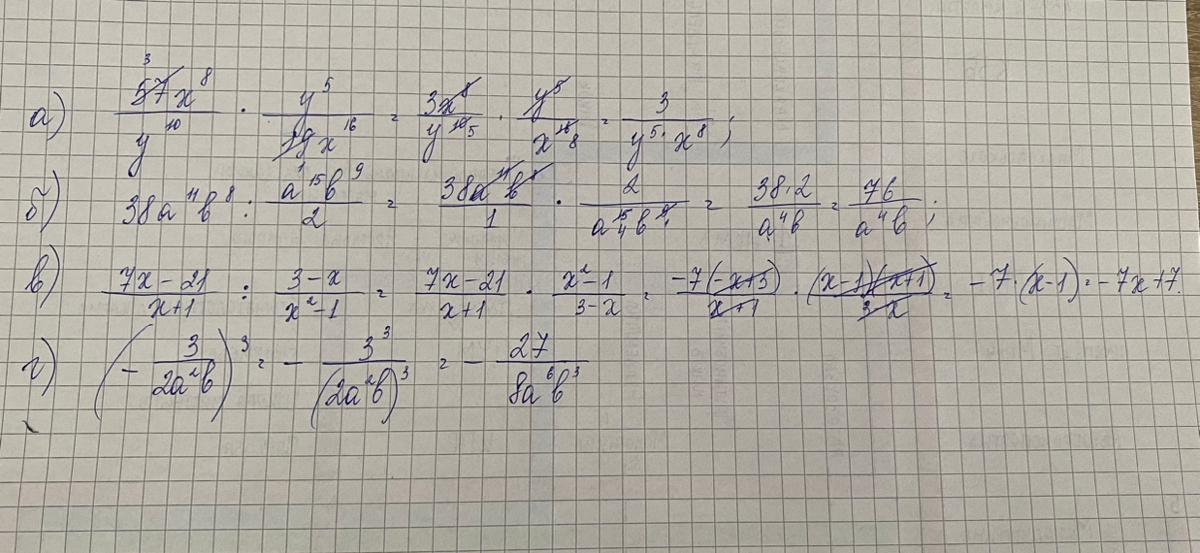 а) 57x⁸/y¹⁰ · y⁵/19x¹⁶ = 3x⁸/y¹⁰ ⁵ · y⁵/x¹⁶ ⁸ = 3/y⁵·x⁸;
б) 38a¹¹b⁸ : a¹⁵b⁹/2 = 38a¹¹b⁸/1 · 2/a¹⁵ ⁴b⁹ ¹ = 38·2/a⁴b = 76/a⁴b;
в) 7x-21/x+1 : 3-x/x²-1 = 7x-21/x+1 · x²-1/3-x = -7(-x+3)/x+1 · (x-1)(x+1)/3-x = -7·(x-1) = -7x+7.
г) (-3/2a²b)³ = -3³/(2a²b)³ = -27/8a⁶b³